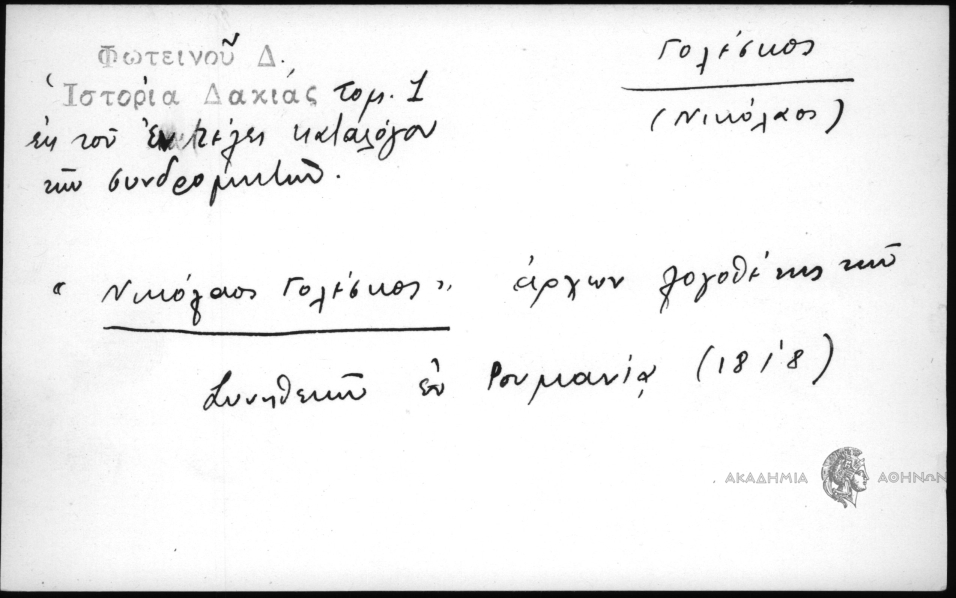 Φωτεινοῦ Δ.
Ἱστορία Δακίας τομ. 1
ἐκ τοῦ ἐν τέλει καταλόγου
τῶν συνδρομητῶν.
Γολέσκος
(Νικόλαος)
"Νικόλαος Γολέσκος" ἄρχων λογοθέτης τῶν
Συνηθειῶν ἐν Ρουμανίᾳ (1818)
ΑΚΑΔΗΜΙΑ ΑΘΗΝΩΝ